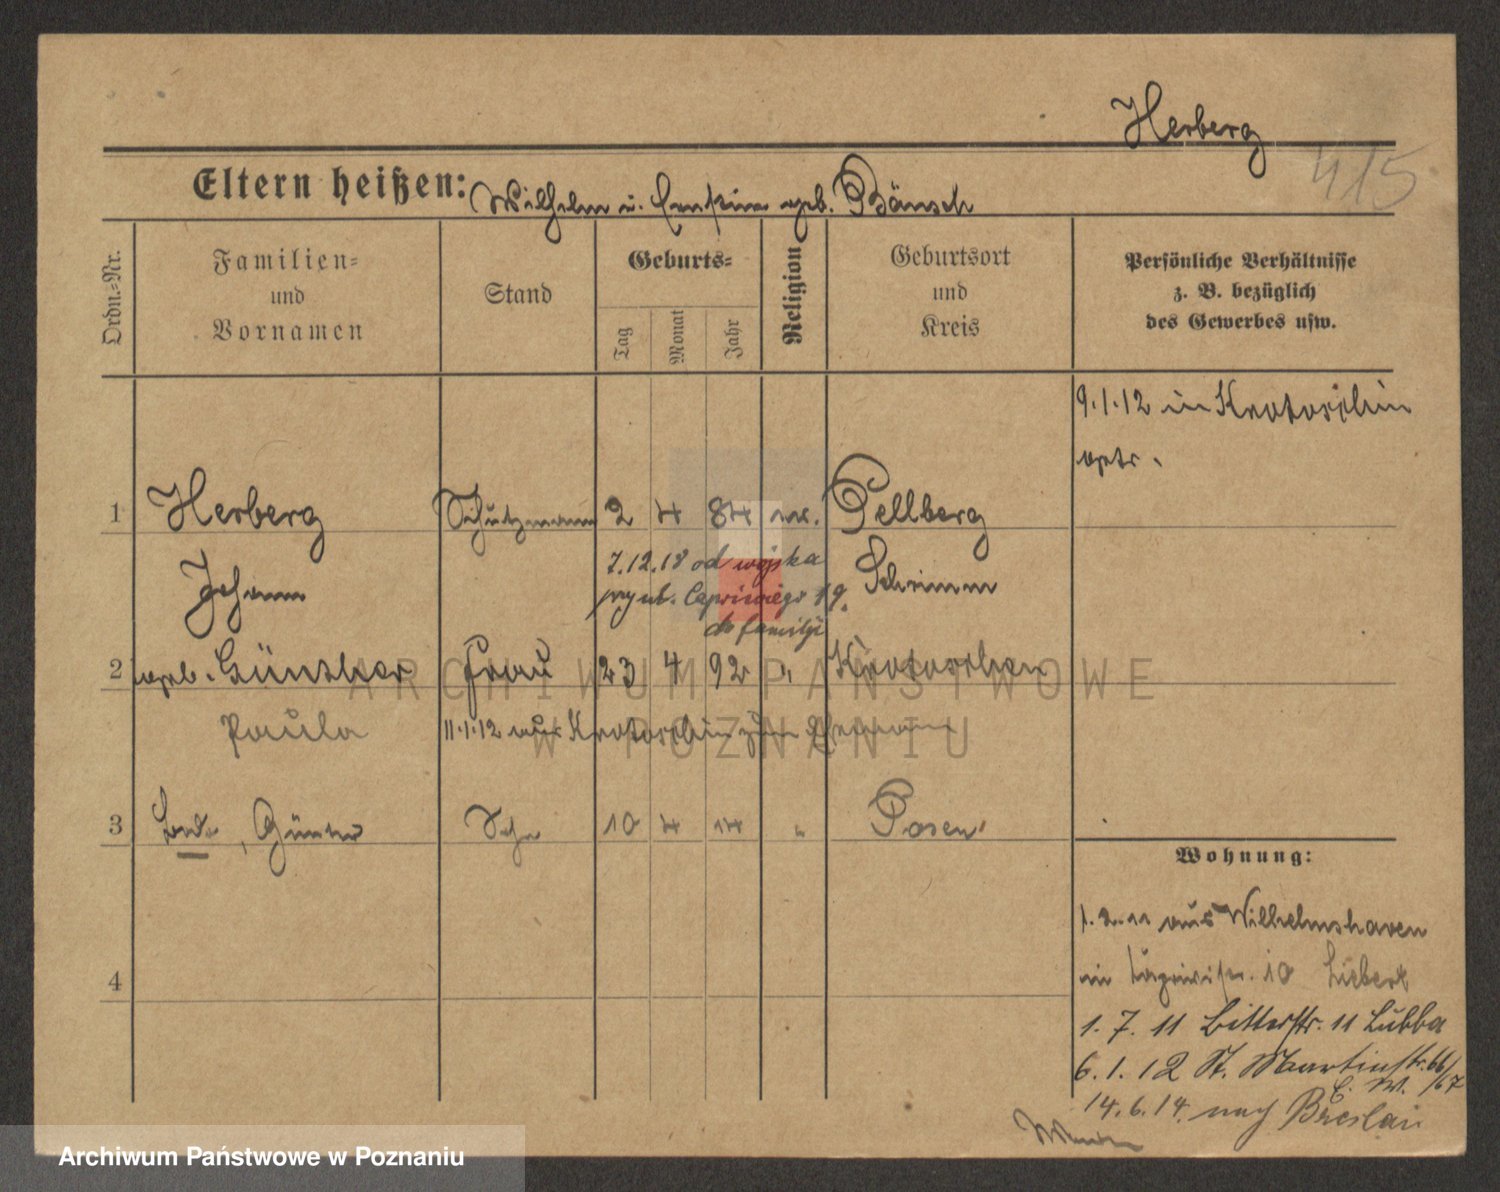 Herberg
415
Eltern heißen: Wilhelm u. Ernstine geb. Bänsch
Ordn.-Nr.
Familien-
und
Vornamen
Stand
Geburts-
Tag
Monat
Jahr
Religion
Geburtsort
und
Kreis
Persönliche Verhältnisse
z. B. bezüglich
des Gewerbes usw.
9.1.12 in Krotoschin
1 Herberg Schutzmann 2 4 84 Pellberg
Johann Schrimm
7.12.18 od wojska
do familji
2 geb. Günther Frau 23 4 92 " Krotoschin
Paula 11.1.12 aus Krotoschin zum Ehemann
3 , Günter Sohn 10 4 14 " Posen
Wohnung:
1.2.11 aus Wilhelmshaven
10 Liebert
1.7.11 Bitterstr. 11 Lubba
6.1.12 St. Martinstr. 66/67
E. W.
14.6.14. nach Breslau
4
ARCHIWUM PAŃSTWOWE
W POZNANIU
Archiwum Państwowe w Poznaniu